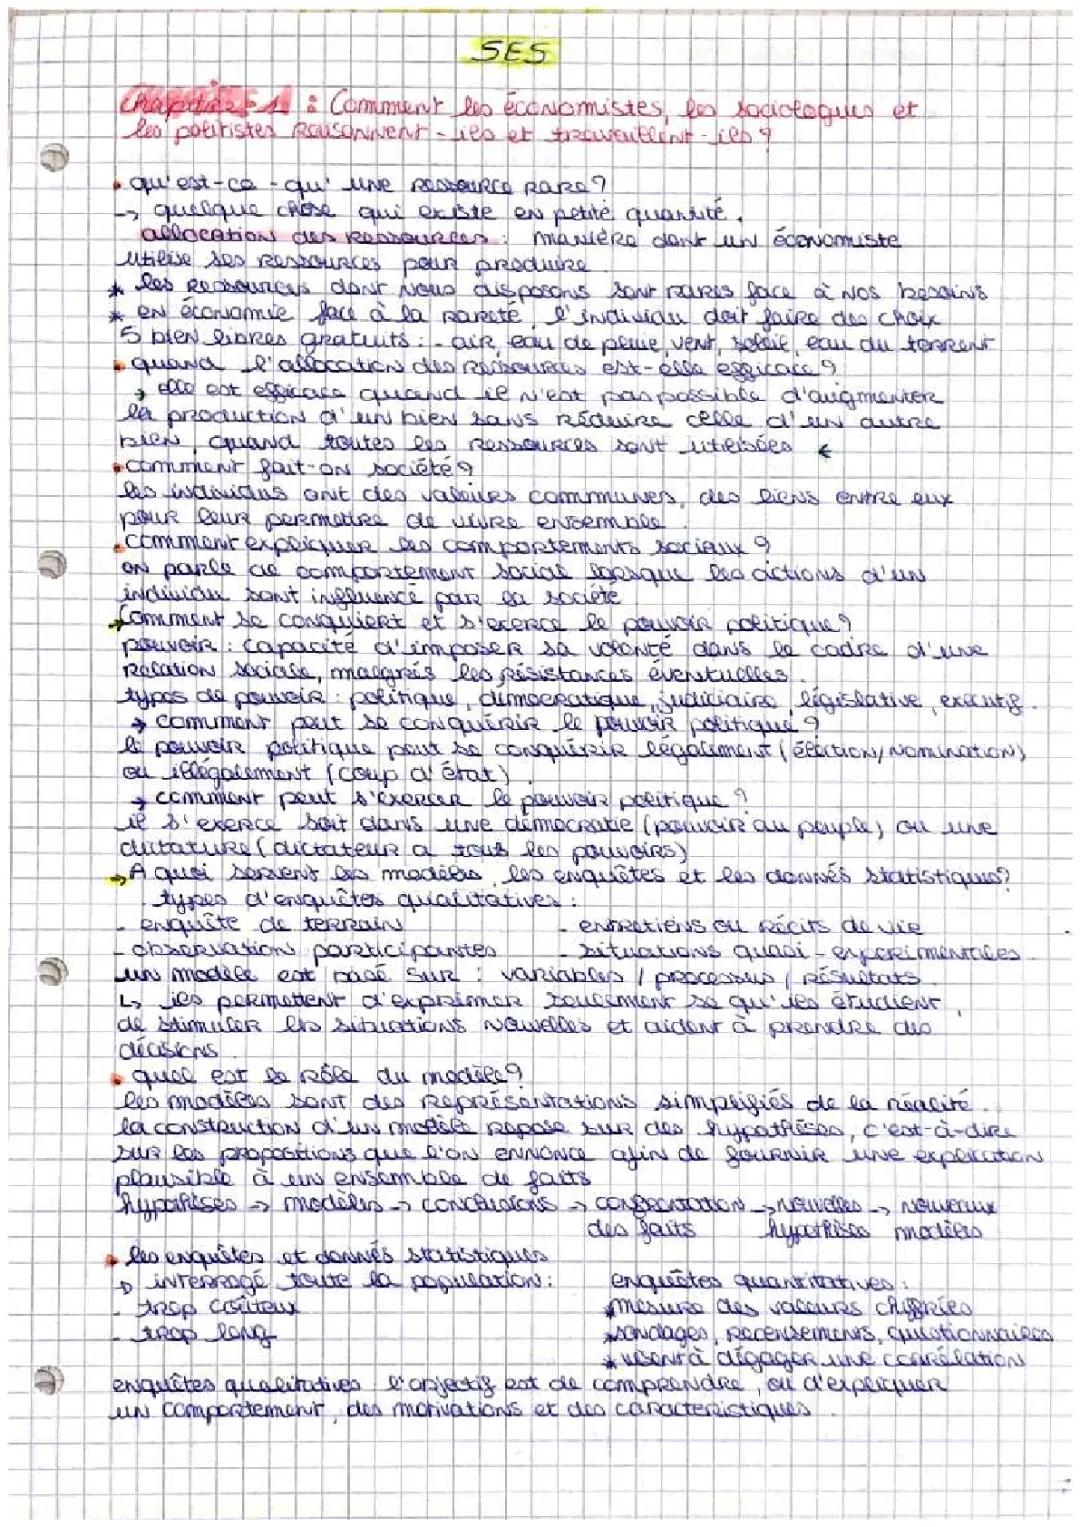 SES
Chapitre 1 : Comment les économistes, les sociologues et
les politistes raisonnent-ils et travaillent-ils ?
qu'est-ce-qu' une ressource rare ?
→ quelque chose qui existe en petite quantité.
allocation des ressources : manière dont un économiste
utilise ses ressources pour produire
* les ressources dont nous disposons sont rares face à nos besoins
* en économie face à la rareté, l'individu doit faire des choix
5 bien libres gratuits : - air, eau de pluie, vent, soleil, eau du torrent
quand l'allocation des ressources est-elle efficace ?
→ elle est efficace quand il n'est pas possible d'augmenter
la production d'un bien sans réduire celle d'un autre
bien, quand toutes les ressources sont utilisées ←
comment fait-on société ?
les individus ont des valeurs communes, des liens entre eux
pour leur permettre de vivre ensemble.
comment expliquer les comportements sociaux ?
on parle de comportement social lorsque les actions d'un
individu sont influencé par la société
→ Comment se conquiert et s'exerce le pouvoir politique ?
pouvoir : capacité d'imposer sa volonté dans le cadre d'une
relation sociale, malgrés les résistances éventuelles.
types de pouvoir : politique, démocratique, judiciaire, législative, exécutif.
→ comment peut se conquérir le pouvoir politique ?
le pouvoir politique peut se conquérir légalement (élection/nomination)
ou illégalement (coup d'état).
→ comment peut s'exercer le pouvoir politique ?
il s'exerce soit dans une démocratie (pouvoir au peuple) ou une
dictature (dictateur a tous les pouvoirs)
→ A quoi servent les modèles, les enquêtes et les donnés statistiques ?
types d'enquêtes qualitatives :
- enquête de terrain - entretiens ou récits de vie
- observations participantes - situations quasi-experimentales.
un modèle est basé sur : variables / processus / résultats.
↳ ils permettent d'exprimer seulement se qu'ils étudient,
de stimuler les situations nouvelles et aident à prendre des
décisions.
quel est le rôle du modèle ?
les modèles sont des représentations simplifiés de la réalité.
la construction d'un modèle repose sur des hypothèses, c'est-à-dire
sur les propositions que l'on ennonce afin de fournir une explication
plausible à un ensemble de faits
hypothèses → modèles → conclusions → confrontation → nouvelles → nouveaux
des faits hypothèses modèles
les enquêtes et donnés statistiques
interrogé toute la population : enquêtes quantitatives :
- trop coûteux * mesure des valeurs chiffrées
- trop long * sondages, recensements, questionnaires
* visent à dégager une corrélation
enquêtes qualitatives l'objectif est de comprendre, ou d'expliquer
un comportement, des motivations et des caractéristiques.